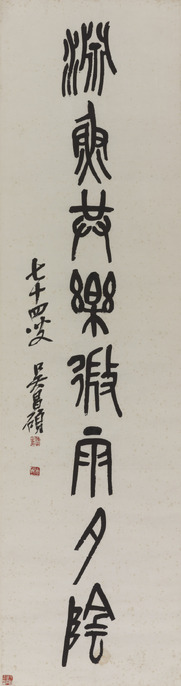 淵魚共樂微雨夕陰
七十四叟 吳昌碩